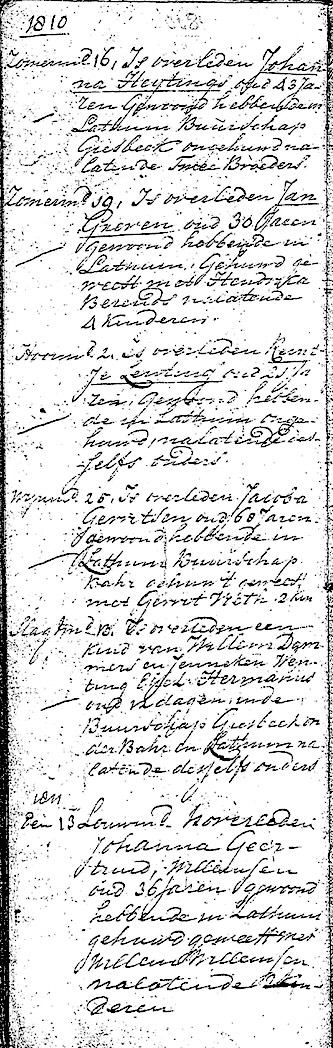 1810
Zomermd 16, Is overleden Johan
na Heytings oud 43 Ja-
ren Gewoond hebbende in
Lathum Buurschap
Giesbeek ongehuwd na
latende Twee Broeders
Zomermd 19, Is overleden Jan
Greven oud 30 Jaren
gewoond hebbende in
Lathum, Gehuwd ge
weest met Hendrika
Berends nalatende
4 kinderen.
2. Is overleden
je oud 21 Ja
ren, Gewoond hebben-
de in Lathum onge-
huwd, nalatende
selfs ouders
Wynmd 25, Is overleden Jacoba
Gerritsen, oud 60 Jaren
gewoond hebbende in
Lathum Buurschap
Bahr gehuwt geweest
met Gerrit Veth. 2 kin
Slagtmd 18. Is overleden een
kind van Willem Dam
mers en Jenneken Wen-
ting Hermanus
oud dagen, inde
Buurschap Giesbeek on
der Bahr en Lathum na
latende desselfs ouders
1811
Den 13 Louwmd. Is overleden
Johanna Geer-
truid, Willemsen
oud 36 jaren gewoond
hebbende in Lathum
gehuwd geweest met
Willem Willemsen
nalatende kin-
deren